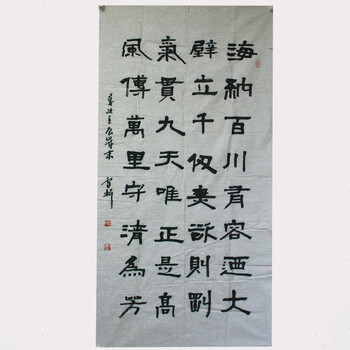 海納百川有容迺大
壁立千仞無欲則剛
氣貫九天唯正是高
風傳萬里守清為芳
壬辰歲末